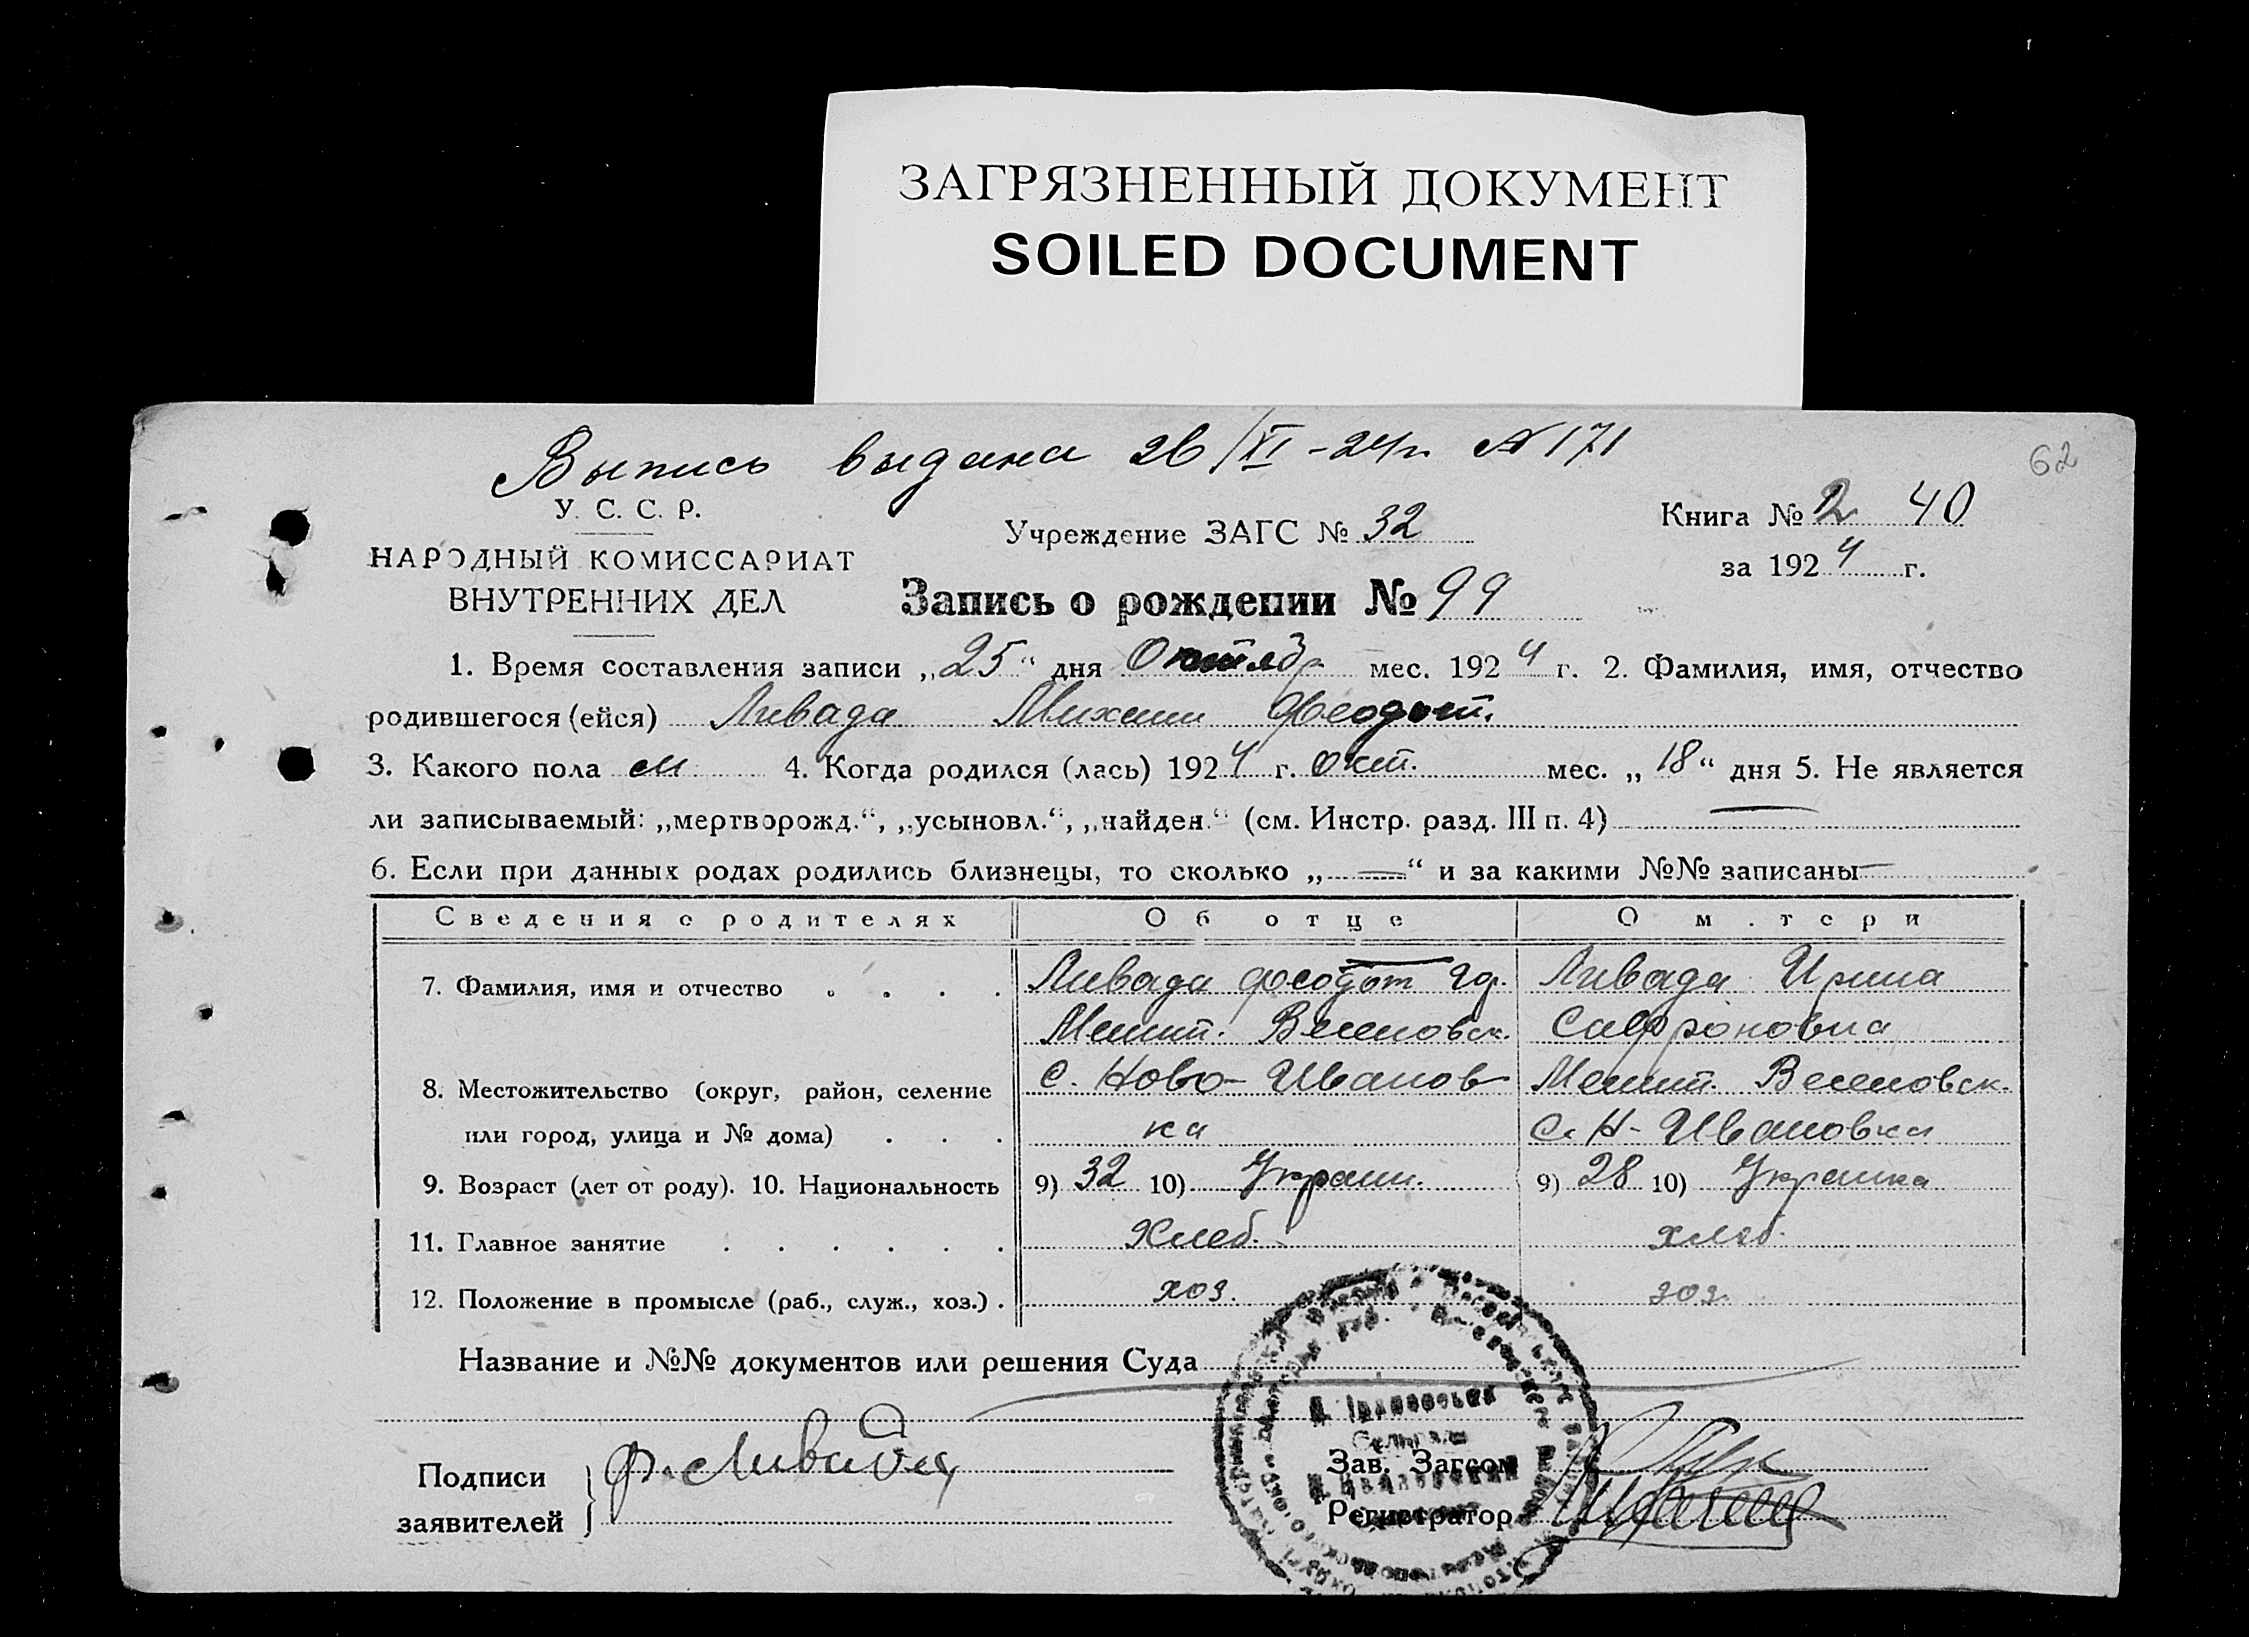 ЗАГРЯЗНЕННЫЙ ДОКУМЕНТ
SOILED DOCUMENT
Выпись выдана 26/XI-24г. N 171
62
У. С. С. Р.
НАРОДНЫЙ КОМИССАРИАТ
ВНУТРЕННИХ ДЕЛ
Учреждение ЗАГС № 32
Книга № 2 40
за 1924 г.
Запись о рождении № 99
1. Время составления записи „25“ дня Октябр мес. 1924 г. 2. Фамилия, имя, отчество
родившегося (ейся) Ливада Михаил Феодот.
3. Какого пола м 4. Когда родился (лась) 1924 г. Окт. мес. „18“ дня 5. Не является
ли записываемый: „мертворожд.“, „усыновл.“, „найден.“ (см. Инстр. разд. III п. 4) —
6. Если при данных родах родились близнецы, то сколько „—“ и за какими №№ записаны —
Сведения о родителях Об отце О матери
7. Фамилия, имя и отчество . . . . Ливада Феодот Гр. Ливада Ирина
Мелит. Веселовск. Сафроновна
8. Местожительство (округ, район, селение С. Ново-Иванов Мелит. Веселовск.
или город, улица и № дома) . . . ка С. Н-Ивановка
9. Возраст (лет от роду). 10. Национальность 9) 32 10) Украин. 9) 28 10) Украинка
11. Главное занятие . . . . . . Хлеб. хлеб.
12. Положение в промысле (раб., служ., хоз.) . хоз. хоз.
Название и №№ документов или решения Суда
Подписи
заявителей
Ф. Ливада
Зав. Загсом
Регистратор